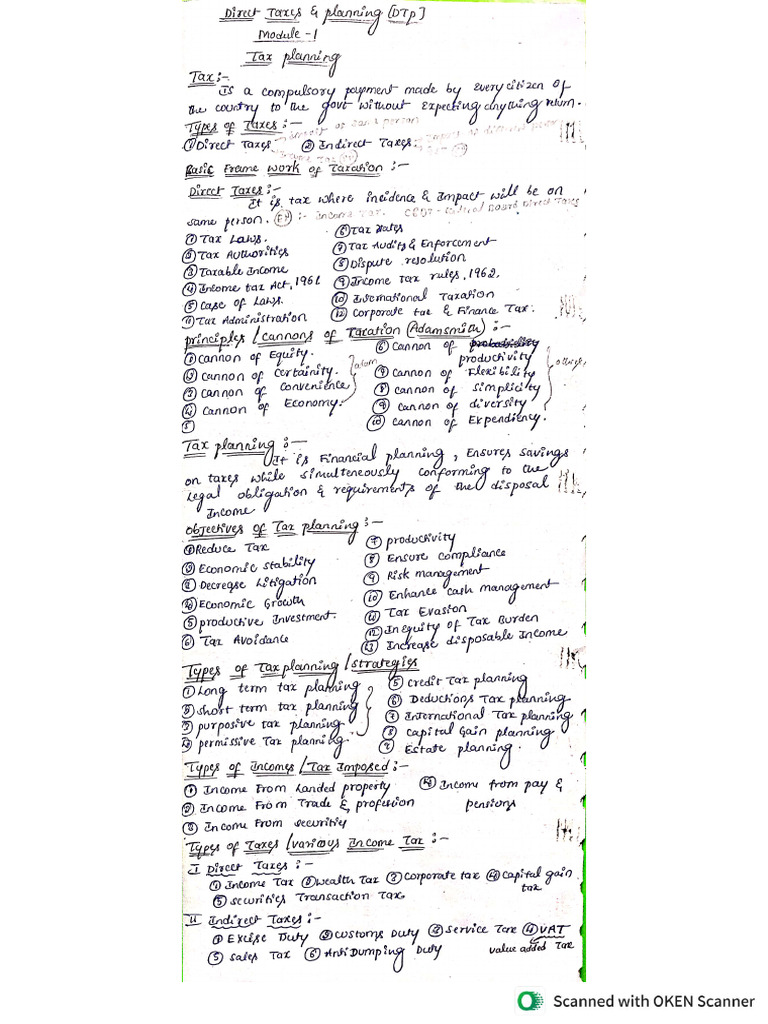 Direct Taxes & planning [DTP]
Module -1
Tax planning
Tax :-
Is a compulsory payment made by every citizen of
the country to the govt without expecting anything return.
Types of Taxes :-
① Direct Taxes ② Indirect Taxes
Basic Frame work of Taxation :-
Direct Taxes :-
It is tax where incidence & Impact will be on
same person. (Ex) :- Income Tax. CBDT - Central Board Direct Taxes
① Tax Laws. ⑥ Tax Rates
② Tax Authorities ⑦ Tax Audits & Enforcement
③ Taxable Income ⑧ Dispute resolution
④ Income tax Act, 1961 ⑨ Income Tax rules, 1962.
⑤ Case of Laws. ⑩ International Taxation
⑪ Tax Administration ⑫ Corporate tax & Finance Tax.
principles / Cannons of Taxation (Adamsmith) :-
① Cannon of Equity. ⑥ Cannon of productivity
② Cannon of Certainity. ⑦ Cannon of Flexibility
③ Cannon of Convenience ⑧ Cannon of Simplicity
④ Cannon of Economy. ⑨ Cannon of diversity
⑤ ⑩ Cannon of Expendiency.
Tax planning :-
It is Financial planning, Ensures savings
on taxes while simulteneously conforming to the
Legal obligation & requirements of the disposal
Income
Objectives of Tax planning :-
① Reduce Tax ⑦ productivity
② Economic Stability ⑧ Ensure compliance
③ Decrease Litigation ⑨ Risk management
④ Economic Growth ⑩ Enhance cash management
⑤ productive Investment. ⑪ Tax Evasion
⑥ Tax Avoidance ⑫ Inequity of Tax Burden
⑬ Increase disposable Income
Types of Tax planning / strategies
① Long term tax planning ⑤ Credit Tax planning
② short term tax planning ⑥ Deductions Tax planning
③ purposive tax planning ⑦ International Tax planning
④ permissive Tax planning. ⑧ Capital Gain planning
⑨ Estate planning.
Types of Incomes / Tax Imposed :-
① Income From Landed property ④ Income from pay &
② Income From Trade & profession pensions
③ Income From securities
Types of Taxes / various Income Tax :-
I Direct Taxes :-
① Income Tax ② wealth Tax ③ Corporate tax ④ Capital gain
tax
⑤ securities Transaction Tax.
II Indirect Taxes :-
① Excise Duty ② Customs Duty ③ Service Tax ④ VAT
⑤ Sales Tax ⑥ Anti Dumping Duty value added Tax
Scanned with OKEN Scanner